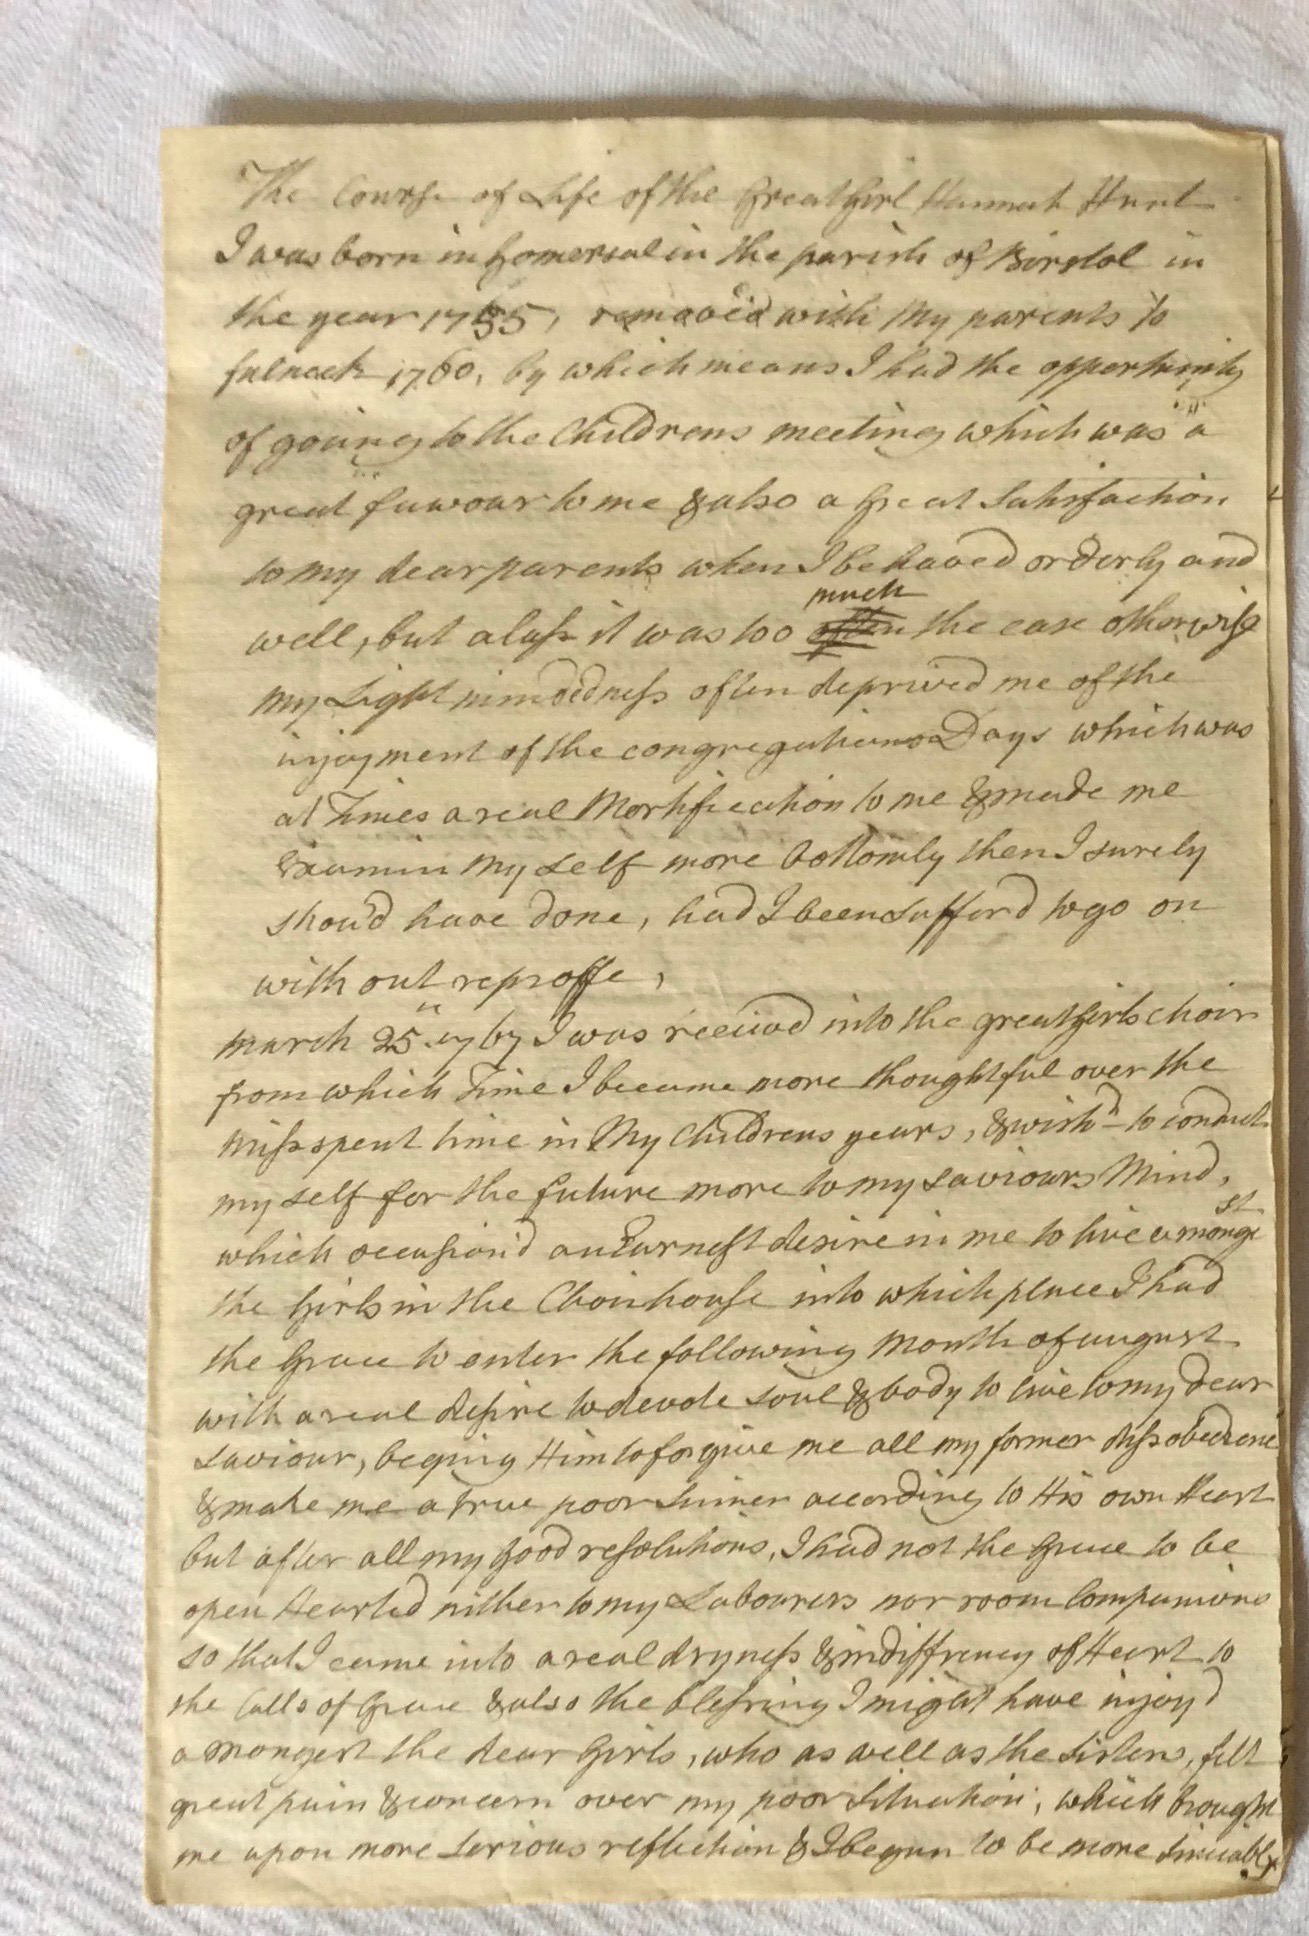 The Course of Life of the Great Girl Hannah Hunt
I was born in Gomersal in the parish of Birstol in
the year 1755, remove'd with My parents to
fulneck 1760, by which means I had the opportunity
of going to the Childrens meeting which was a
great favour to me & also a Great Satisfaction
to my dear parents when I behaved orderly and
well, but alass it was too much the case otherwise
my Light mindedness often deprived me of the
injoyment of the congregations Days which was
at Times a real Mortification to me & made me
Examin My self more bottomly then I surely
shou'd have done, had I been Sufferd to go on
with out reproffe,
march 25th 1767 I was received into the great Girls choir
from which Time I became more thoughtful over the
misspent time in My Childrens years, & wish'd to conduct
my self for the future more to my saviours Mind,
which occasion'd an Earnest desire in me to live amongst
the Girls in the Choirhouse into which place I had
the Grace to enter the following Month of august
with a real desire to devote soul & body to live to my dear
saviour, beging Him to forgive me all my former dissobedience
& make me a true poor Sinner according to His own Heart
but after all my Good resolutions, I had not the Grace to be
open Hearted nither to my Labourers nor room Companions
so that I came into a real dryness & indiffrency of Heart to
the Calls of Grace & also the blessing I might have injoy'd
amongest the dear Girls, who as well as the Sisters, felt
great pain & concern over my poor Situation, which brought
me upon more Serious reflection & I begun to be more